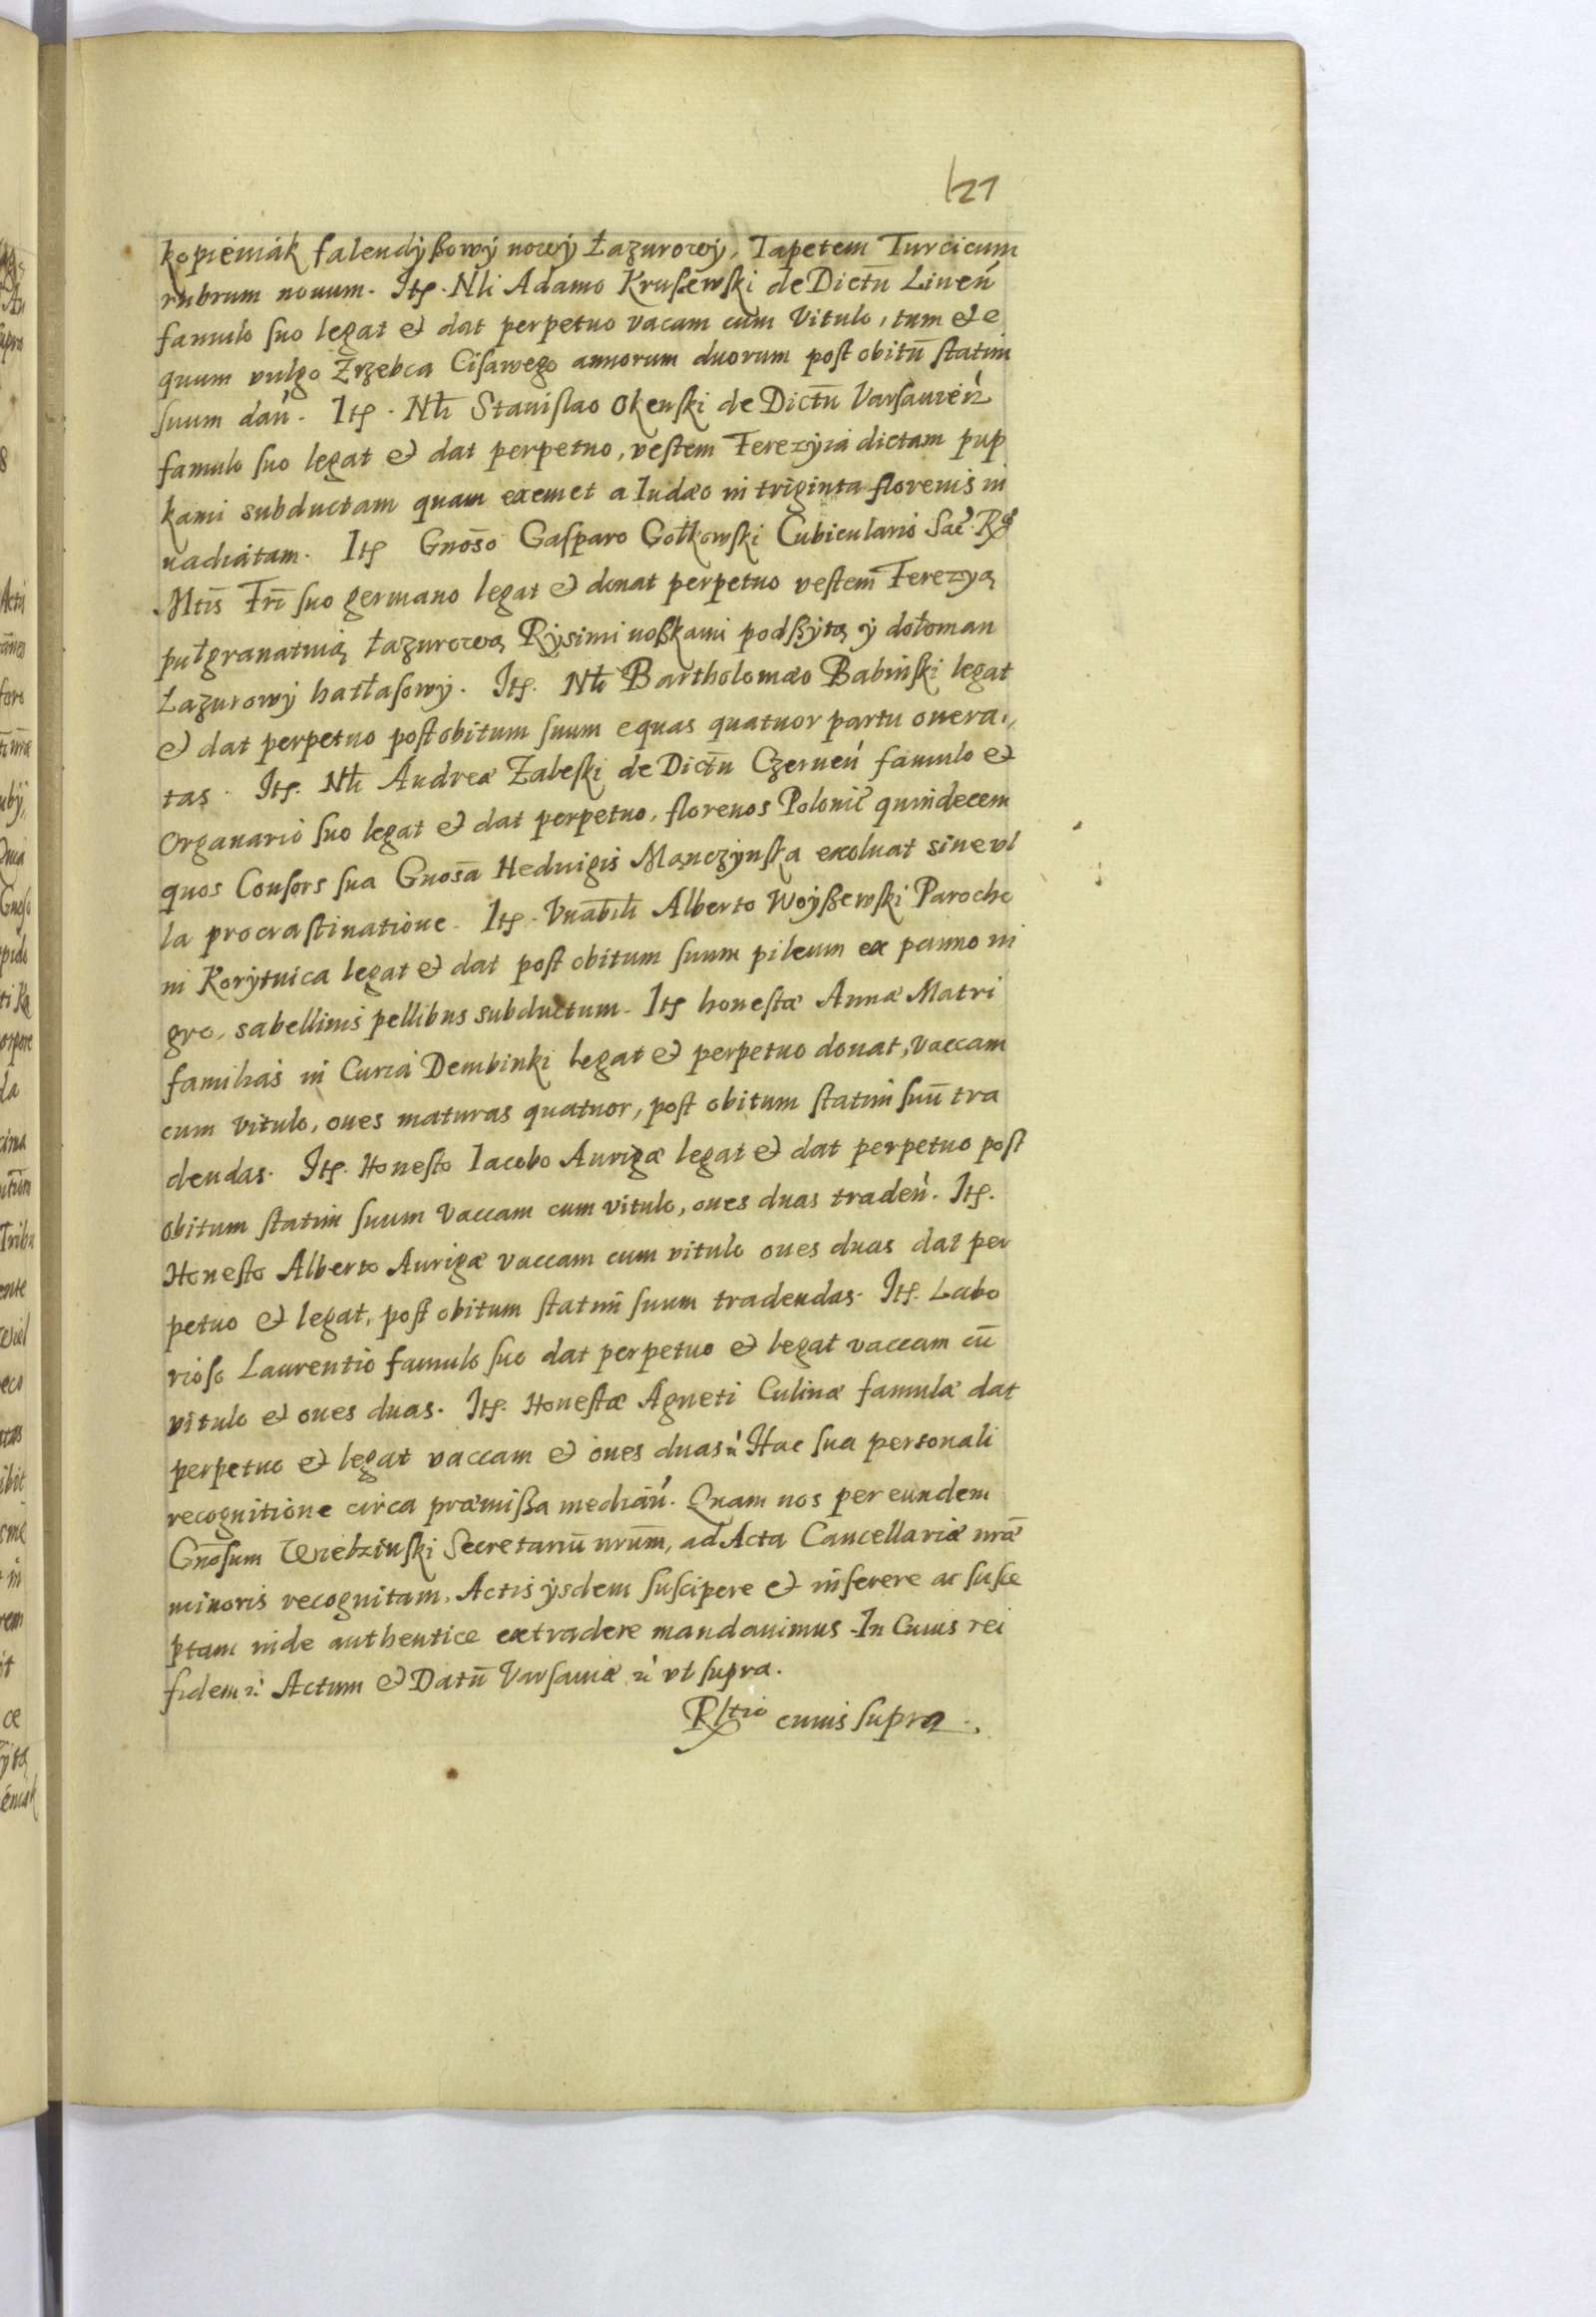 121
kopieniák falendyßowy nowy łazurowy, Tapetem Turcicum
rubrum nouum. Itę. Nli Adamo Krusēwski de Dictū Liueń
famulo suo legat & dat perpetuo vacam cum Vitulo, tum & e
quum vulgo Zrzebca Cisawego annorum duorum post obitū statim
suum dań. Itę. Nłi Stanislao Okenski de Dictū Varsauień
famulo suo legat & dat perpetuo, vestem Ferezyia dictam pup
kami subductam quam exemet a Iudæo in triginta florenis in
uadiatam. Itę Gnōso Gasparo Gołkowski Cubiculario Sac. Rg
Mtis Fri suo germano legat & donat perpetuo vestem Ferezyą
pułgranatnią łazurową Rysimi noßkami podßytą y dołoman
łazurowy hatłasowy. Itę. Nłi Bartholomæo Babinski legat
& dat perpetuo post obitum suum equas quatuor partu onera,,
tas. Itę. Nłi Andreæ Zaleski de Dictū Czerneń famulo &
Organario suo legat & dat perpetuo, florenos Polonic quindecem
quos Consors sua Gnosā Heduigis Mączynska exoluat sine vl
la procrastinatione. Itę. Vnabili Alberto Woyßewski Parocho
in Korytnica legat & dat post obitum suum pileum ex panno ni
gro, sabellinis pellibus subductum. Itę honestæ Annæ Matri
familias in Curia Dembinki legat & perpetuo donat, vaccam
cum vitulo, oues maturas quatuor, post obitum statim suū tra
dendas. Itę. Honesto Iacobo Aurigæ legat & dat perpetuo post
obitum statim suum vaccam cum vitulo, oues duas tradeń. Itę.
Honesto Alberto Aurigæ vaccam cum vitulo oues duas dat per
petuo & legat, post obitum statim suum tradendas. Itę. Labo
rioso Laurentio famulo suo dat perpetuo & legat vaccam cū
vitulo & oues duas. Itę. Honestæ Agneti Culinæ famulæ dat
perpetuo & legat vaccam & oues duas Hac sua personali
recognitione circa præmißa mediań. Quam nos per eundem
Gnōsum Wierzbinski Secretariū nrūm, ad Acta Cancellariæ nræ
minoris recognitam, Actis ysdem suscipere & inserere ac susce
ptam inde authentice extradere mandauimus. In Cuius rei
fidem Actum & Datū Varsauiæ vt supra.
Rltio cuius supra.